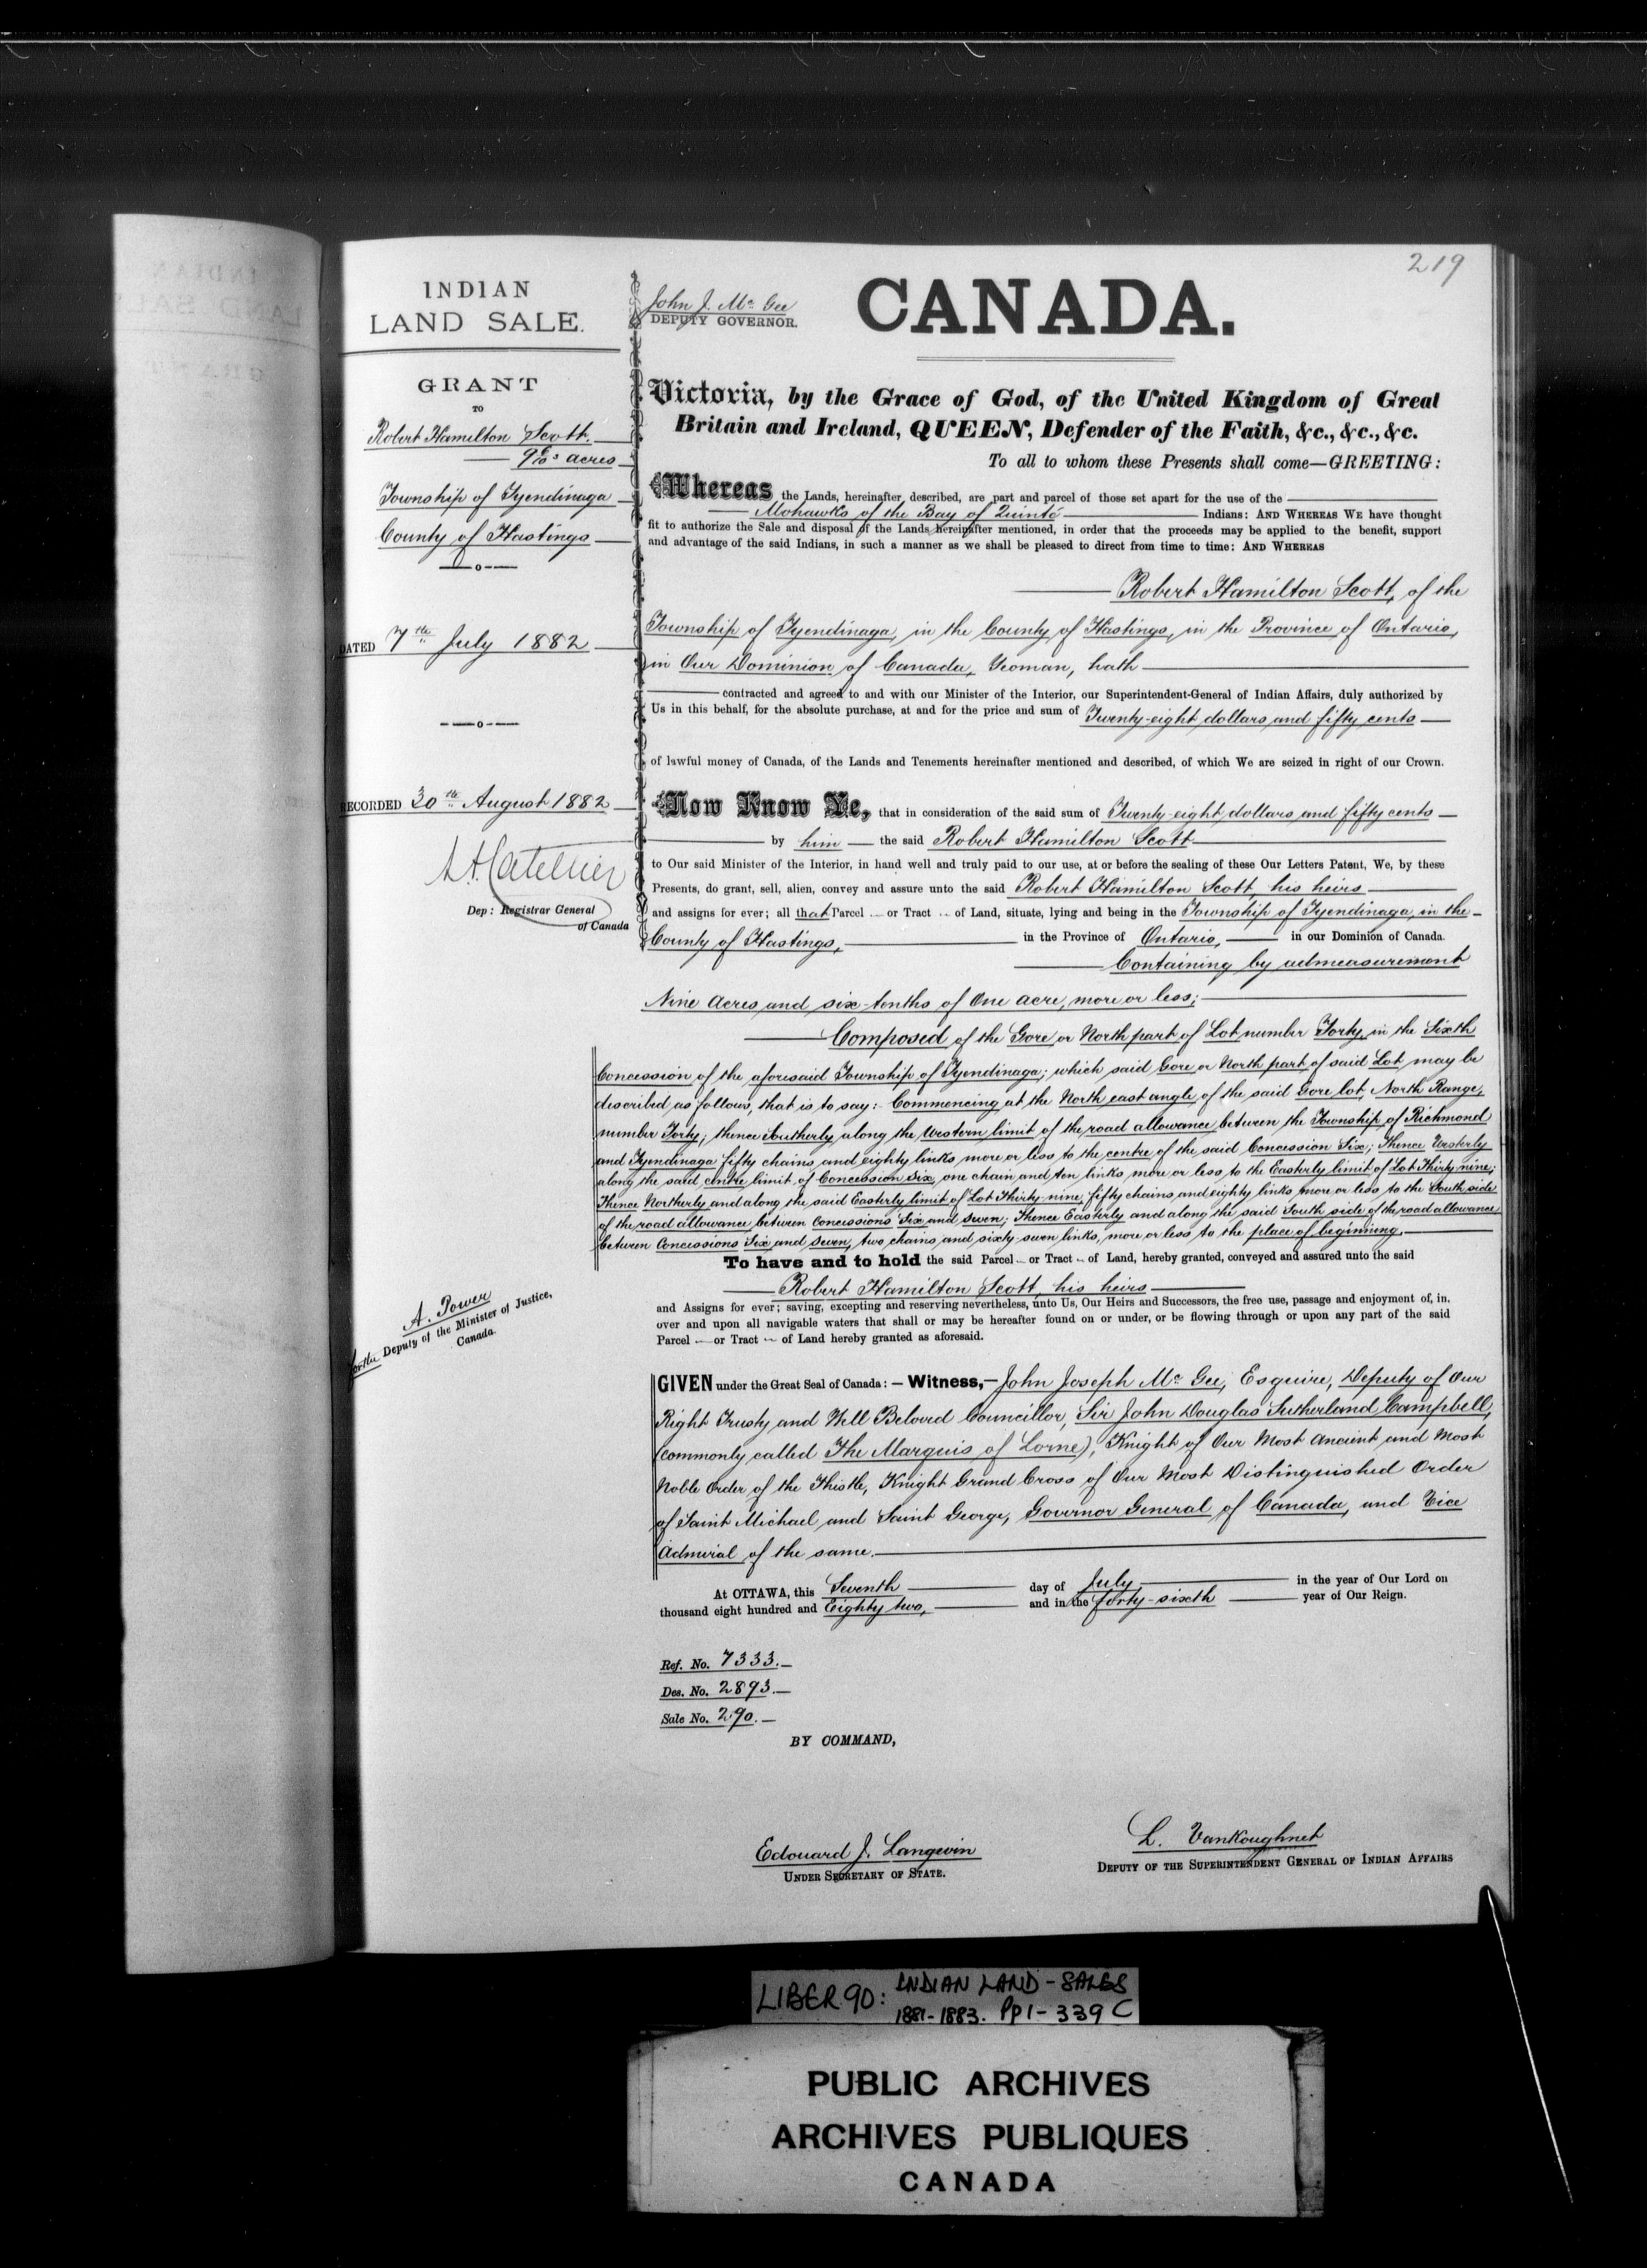 219
INDIAN
LAND SALE.
GRANT
TO
Robert Hamilton Scott.
9 6/10 acres
Township of Tyendinaga
County of Hastings
DATED 7th July 1882
RECORDED 30th August 1882
Dep: Registrar General
of Canada
A. Power
for the Deputy of the Minister of Justice,
Canada.
John J. McGee
DEPUTY GOVERNOR.
CANADA.
Victoria, by the Grace of God, of the United Kingdom of Great
Britain and Ireland, QUEEN, Defender of the Faith, &c., &c., &c.
To all to whom these Presents shall come—GREETING:
Whereas the Lands, hereinafter described, are part and parcel of those set apart for the use of the
Mohawks of the Bay of Quinté Indians: AND WHEREAS WE have thought
fit to authorize the Sale and disposal of the Lands hereinafter mentioned, in order that the proceeds may be applied to the benefit, support
and advantage of the said Indians, in such a manner as we shall be pleased to direct from time to time: AND WHEREAS
Robert Hamilton Scott, of the
Township of Tyendinaga, in the County of Hastings, in the Province of Ontario,
in Our Dominion of Canada, Yeoman, hath
contracted and agreed to and with our Minister of the Interior, our Superintendent-General of Indian Affairs, duly authorized by
Us in this behalf, for the absolute purchase, at and for the price and sum of Twenty-eight dollars and fifty cents
of lawful money of Canada, of the Lands and Tenements hereinafter mentioned and described, of which We are seized in right of our Crown.
Now Know Ye, that in consideration of the said sum of Twenty-eight dollars and fifty cents
by him the said Robert Hamilton Scott
to Our said Minister of the Interior, in hand well and truly paid to our use, at or before the sealing of these Our Letters Patent, We, by these
Presents, do grant, sell, alien, convey and assure unto the said Robert Hamilton Scott his heirs
and assigns for ever; all that Parcel or Tract of Land, situate, lying and being in the Township of Tyendinaga, in the
County of Hastings, in the Province of Ontario, in our Dominion of Canada.
Containing by admeasurement
Nine Acres and six-tenths of One acre, more or less;
Composed of the Gore or North part of Lot number Forty, in the Sixth
Concession of the aforesaid Township of Tyendinaga; which said Gore or North part of said Lot may be
described as follows, that is to say: Commencing at the North east angle of the said Gore lot, North Range,
number Forty; thence Southerly along the Western limit of the road allowance between the Township of Richmond
and Tyendinaga fifty chains and eighty links more or less to the centre of the said Concession Six; Thence Westerly
along the said centre limit of Concession Six, one chain and ten links more or less to the Easterly limit of Lot Thirty-nine;
Thence Northerly and along the said Easterly limit of Lot Thirty-nine, fifty chains and eighty links more or less to the South side
of the road allowance between Concessions Six and Seven; Thence Easterly and along the said South side of the road allowance
between Concessions Six and Seven, two chains and sixty-seven links, more or less to the place of beginning.
To have and to hold the said Parcel or Tract of Land, hereby granted, conveyed and assured unto the said
Robert Hamilton Scott, his heirs
and Assigns for ever; saving, excepting and reserving nevertheless, unto Us, Our Heirs and Successors, the free use, passage and enjoyment of, in,
over and upon all navigable waters that shall or may be hereafter found on or under, or be flowing through or upon any part of the said
Parcel or Tract of Land hereby granted as aforesaid.
GIVEN under the Great Seal of Canada:—Witness,—John Joseph McGee, Esquire, Deputy of Our
Right Trusty and Well Beloved Councillor, Sir John Douglas Sutherland Campbell,
(commonly called The Marquis of Lorne), Knight of Our Most Ancient and Most
Noble Order of the Thistle, Knight Grand Cross of Our Most Distinguished Order
of Saint Michael and Saint George, Governor General of Canada, and Vice
Admiral of the same.
At OTTAWA, this Seventh day of July in the year of Our Lord on
thousand eight hundred and Eighty two, and in the forty-sixth year of Our Reign.
Ref. No. 7333.
Des. No. 2893.
Sale No. 290.
BY COMMAND,
Edouard J. Langevin
UNDER SECRETARY OF STATE.
L. VanKoughnet
DEPUTY OF THE SUPERINTENDENT GENERAL OF INDIAN AFFAIRS
LIBER 90: INDIAN LAND-SALES
1881-1883. Pp 1-339 C
PUBLIC ARCHIVES
ARCHIVES PUBLIQUES
CANADA